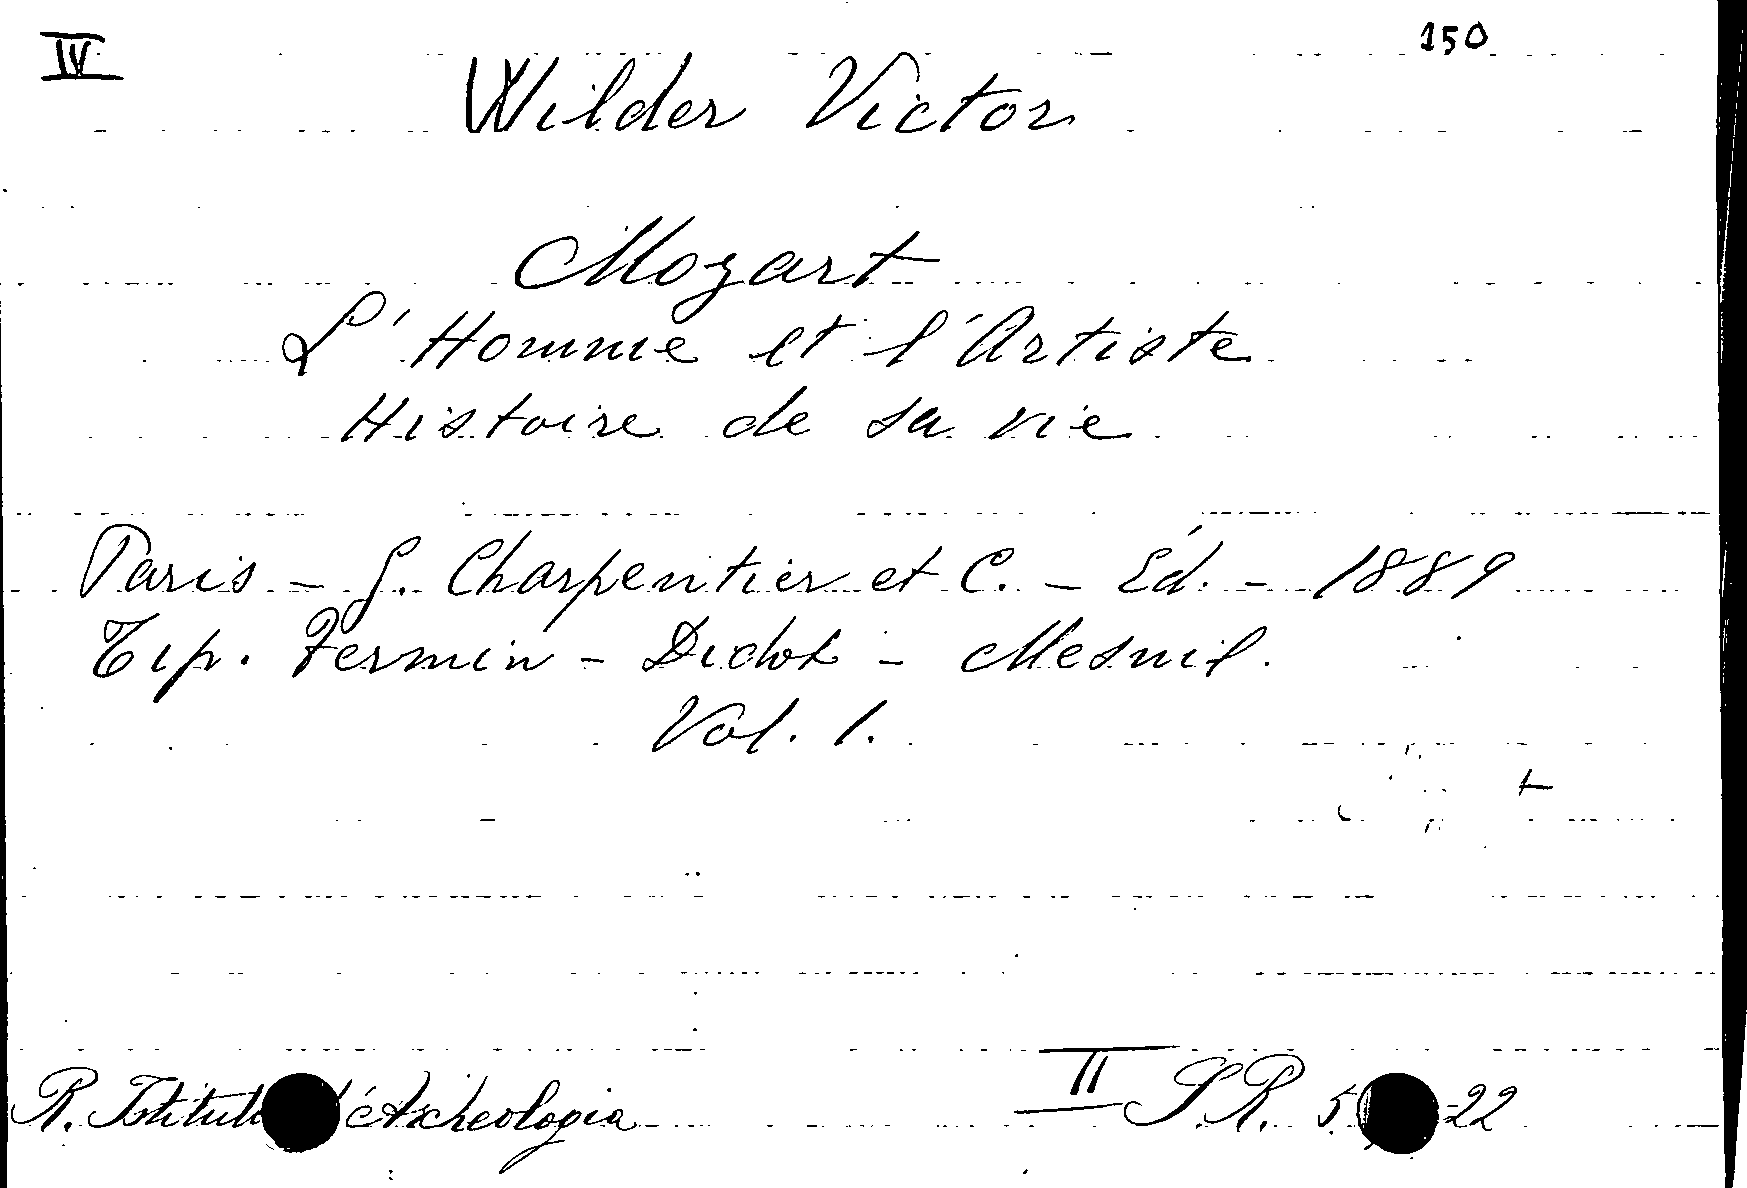 IV 150
Wilder Victor
Mozart
L'Homme et l'Artiste
Histoire de sa vie
Paris - G. Charpentier et C. - Éd. - 1889
Tip. Fermin - Didot - Mesnil.
Vol. 1.
R. Istituto d'Archeologia II S.R. 22